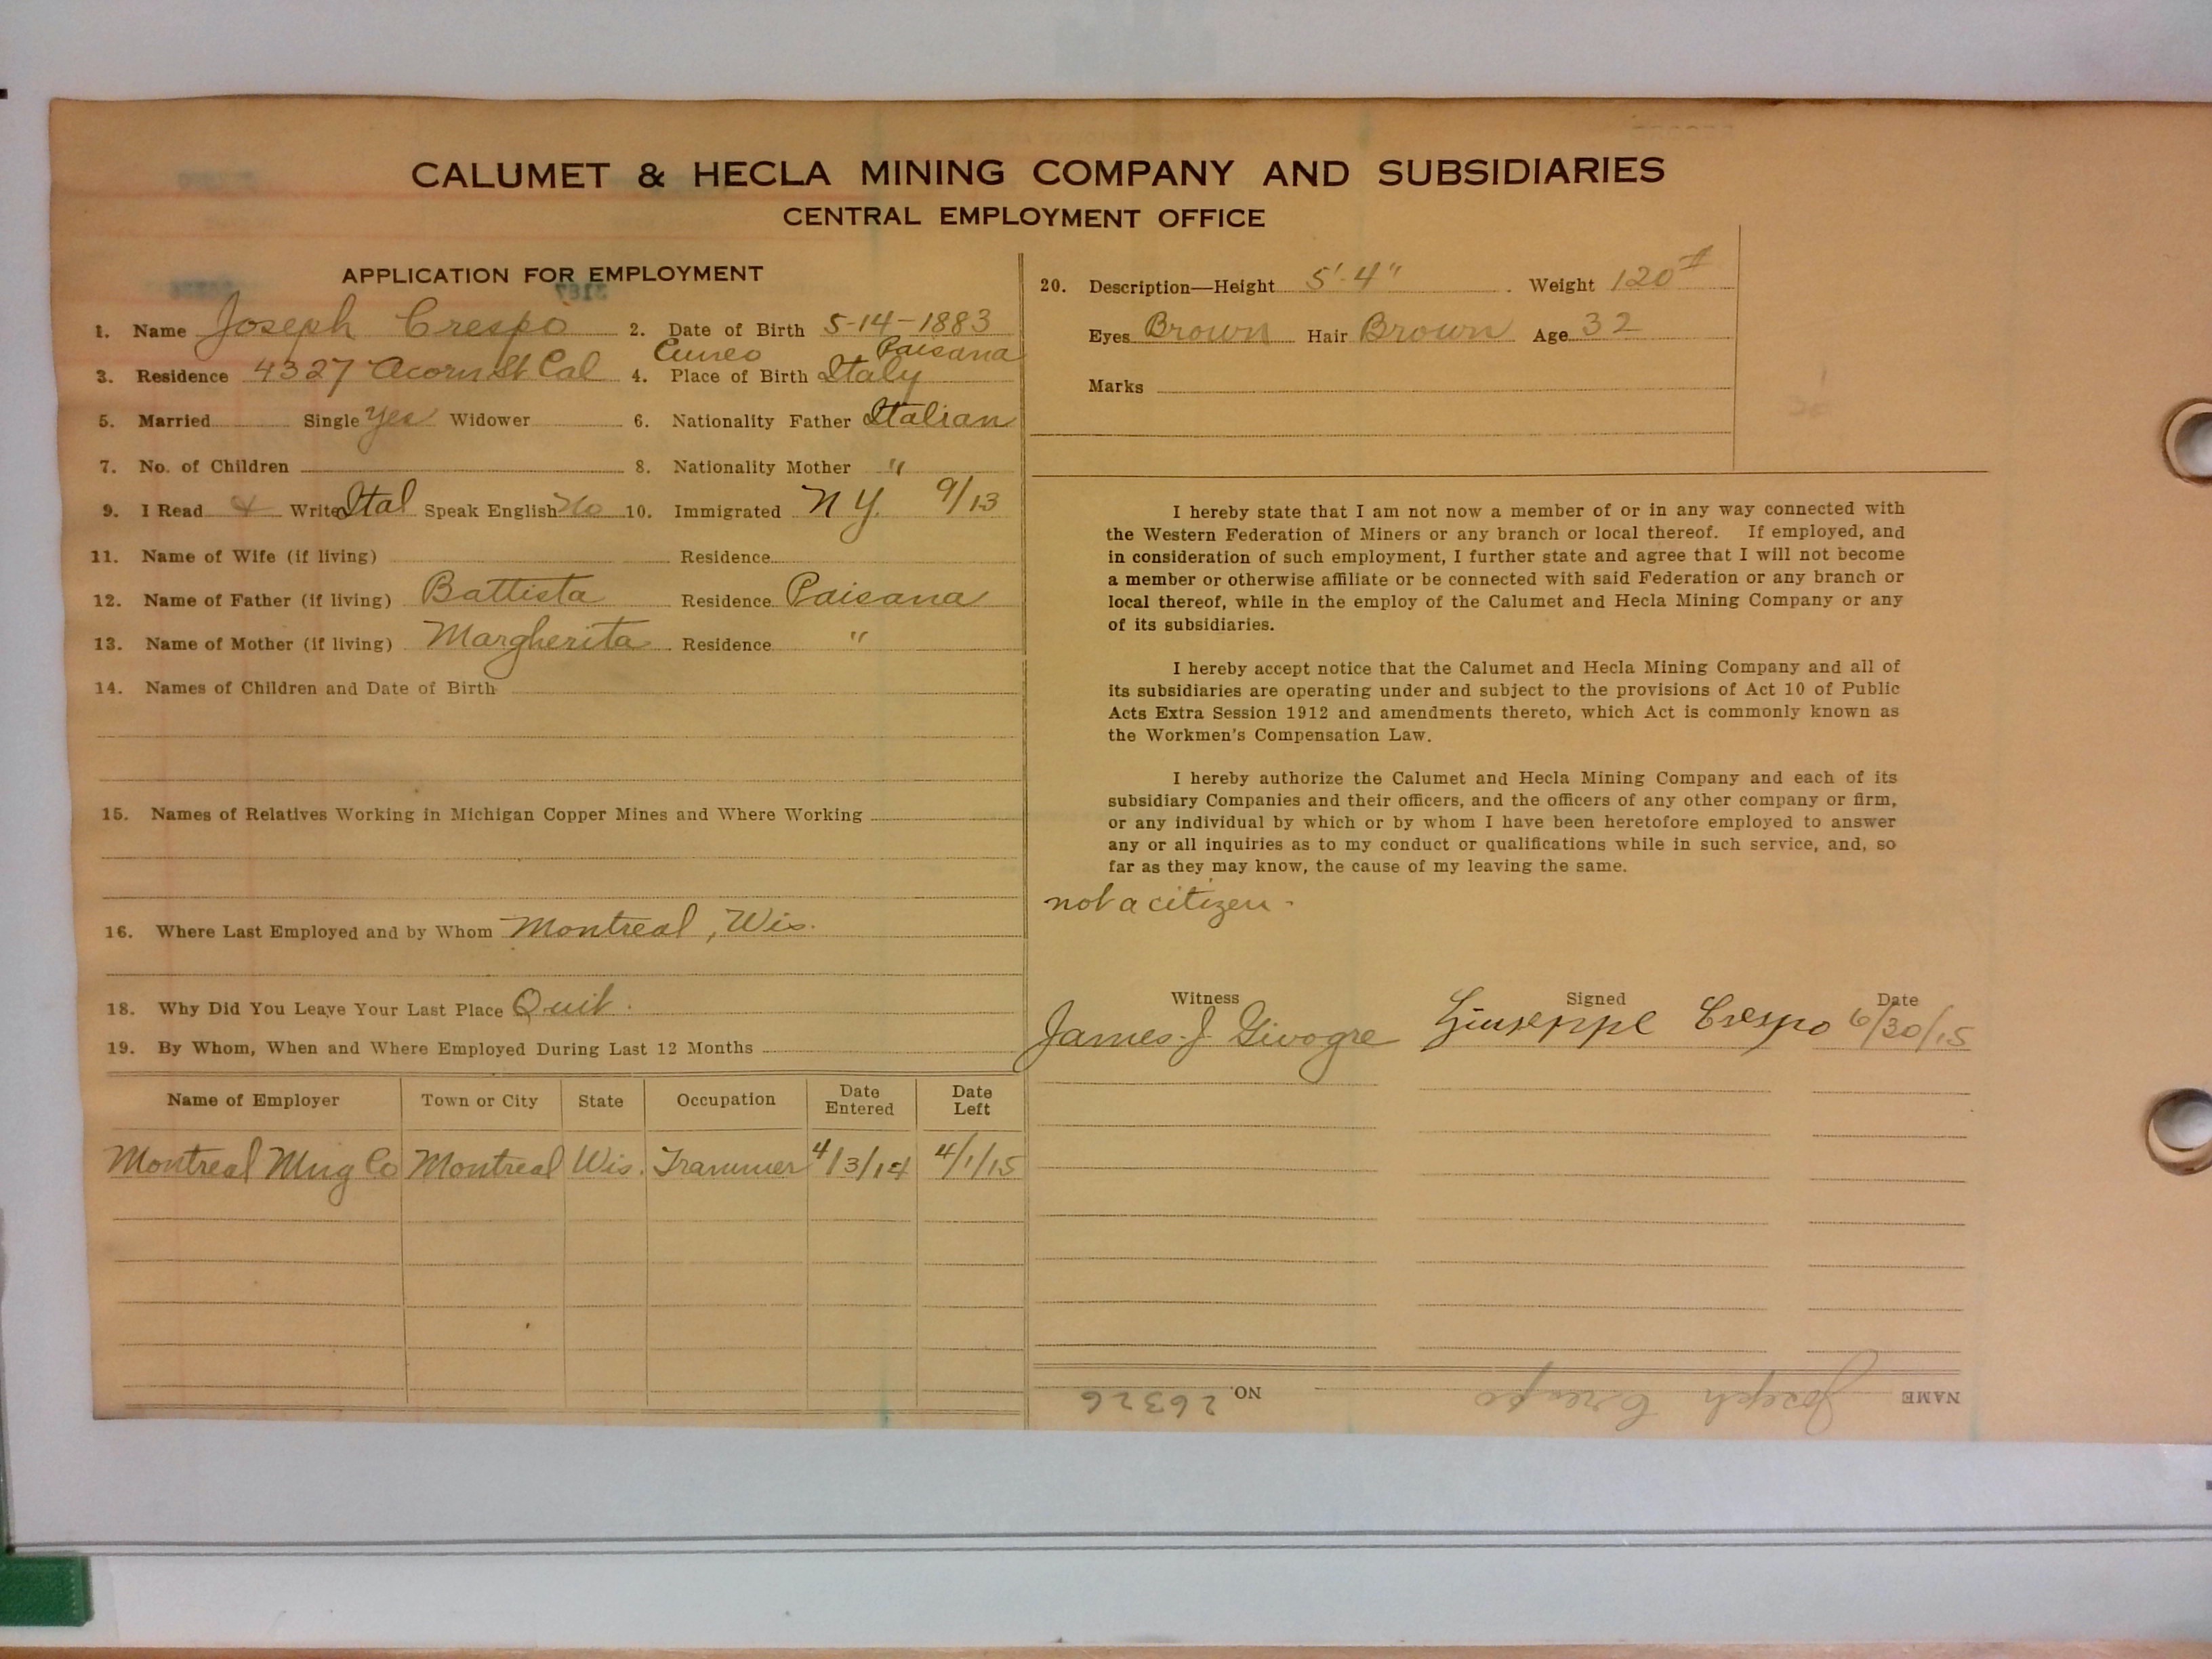 CALUMET & HECLA MINING COMPANY AND SUBSIDIARIES
CENTRAL EMPLOYMENT OFFICE
APPLICATION FOR EMPLOYMENT
3187
1. Name Joseph Crespo 2. Date of Birth 5-14-1883
Cuneo Paisana
3. Residence 4327 Acorn St Cal 4. Place of Birth Italy
5. Married Single Yes Widower 6. Nationality Father Italian
7. No. of Children 8. Nationality Mother "
9. I Read & Write Ital Speak English No 10. Immigrated N Y. 9/13
11. Name of Wife (if living) Residence
12. Name of Father (if living) Battista Residence Paisana
13. Name of Mother (if living) Margherita Residence "
14. Names of Children and Date of Birth
15. Names of Relatives Working in Michigan Copper Mines and Where Working
16. Where Last Employed and by Whom Montreal, Wis.
18. Why Did You Leave Your Last Place Quit.
19. By Whom, When and Where Employed During Last 12 Months
Name of Employer Town or City State Occupation Date Entered Date Left
Montreal Mng Co Montreal Wis. Trammer 4/3/14 4/1/15
20. Description—Height 5'-4" Weight 120#
Eyes Brown Hair Brown Age 32
Marks
I hereby state that I am not now a member of or in any way connected with
the Western Federation of Miners or any branch or local thereof. If employed, and
in consideration of such employment, I further state and agree that I will not become
a member or otherwise affiliate or be connected with said Federation or any branch or
local thereof, while in the employ of the Calumet and Hecla Mining Company or any
of its subsidiaries.
I hereby accept notice that the Calumet and Hecla Mining Company and all of
its subsidiaries are operating under and subject to the provisions of Act 10 of Public
Acts Extra Session 1912 and amendments thereto, which Act is commonly known as
the Workmen's Compensation Law.
I hereby authorize the Calumet and Hecla Mining Company and each of its
subsidiary Companies and their officers, and the officers of any other company or firm,
or any individual by which or by whom I have been heretofore employed to answer
any or all inquiries as to my conduct or qualifications while in such service, and, so
far as they may know, the cause of my leaving the same.
not a citizen -
Witness Signed Date
James J. Givogre Giuseppe Crespo 6/30/15
NAME Joseph Crespo NO. 26326